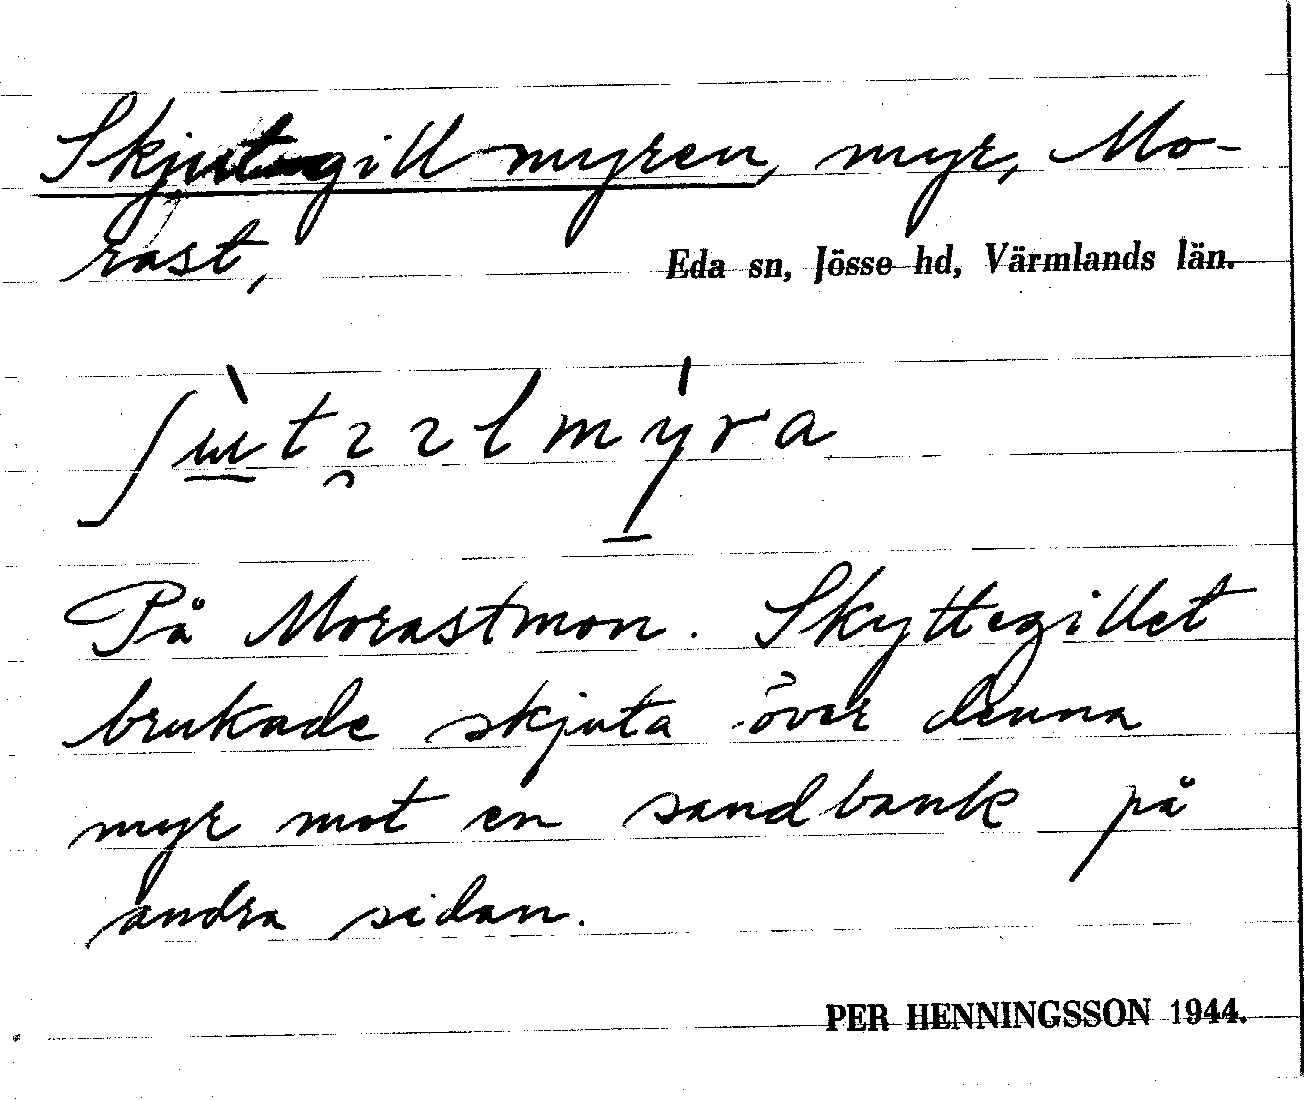 Skjutgillmyren, myr, Mo-
rast,
Eda sn, Jösse hd, Värmlands län.
På Morastmon. Skyttegillet
brukade skjuta över denna
myr mot en sandbank på
andra sidan.
PER HENNINGSSON 1944.